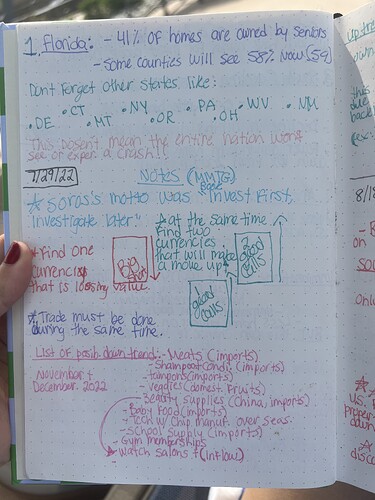 1. Florida: - 41% of homes are owned by seniors
- Some counties will see 58% now (59)
Dont Forget other states like:
• CT • NY • PA • WV • NM
• DE • MT • OR • OH
This doesn't mean the entire nation wont
see or exper. a crash!!
7/29/22 Notes (MMTG)
Base
☆ Soros's motto was "Invest First,
Investigate later."
☆ at the same time
Find two
currencies
that will make
a move up
2 good
calls
☆ Find one
currency
that is losing value.
Big
good
calls
☆ Trade must be done
during the same time.
List of posib. down trend:
November &
December. 2022
- Meats (imports)
- Shampoo & Condi. (imports)
- tampons (imports)
- veggies (domest. Fruits)
- Beauty supplies (China, imports)
- Baby Food (imports)
- Tech w/ Chip manuf. over seas.
- School supply (imports)
- Gym memberships
- Watch salons & (inflow)
up tre
own
this
due
back
(esc:
8/18
on
Soc
Only
U.S.
proper
down
disco